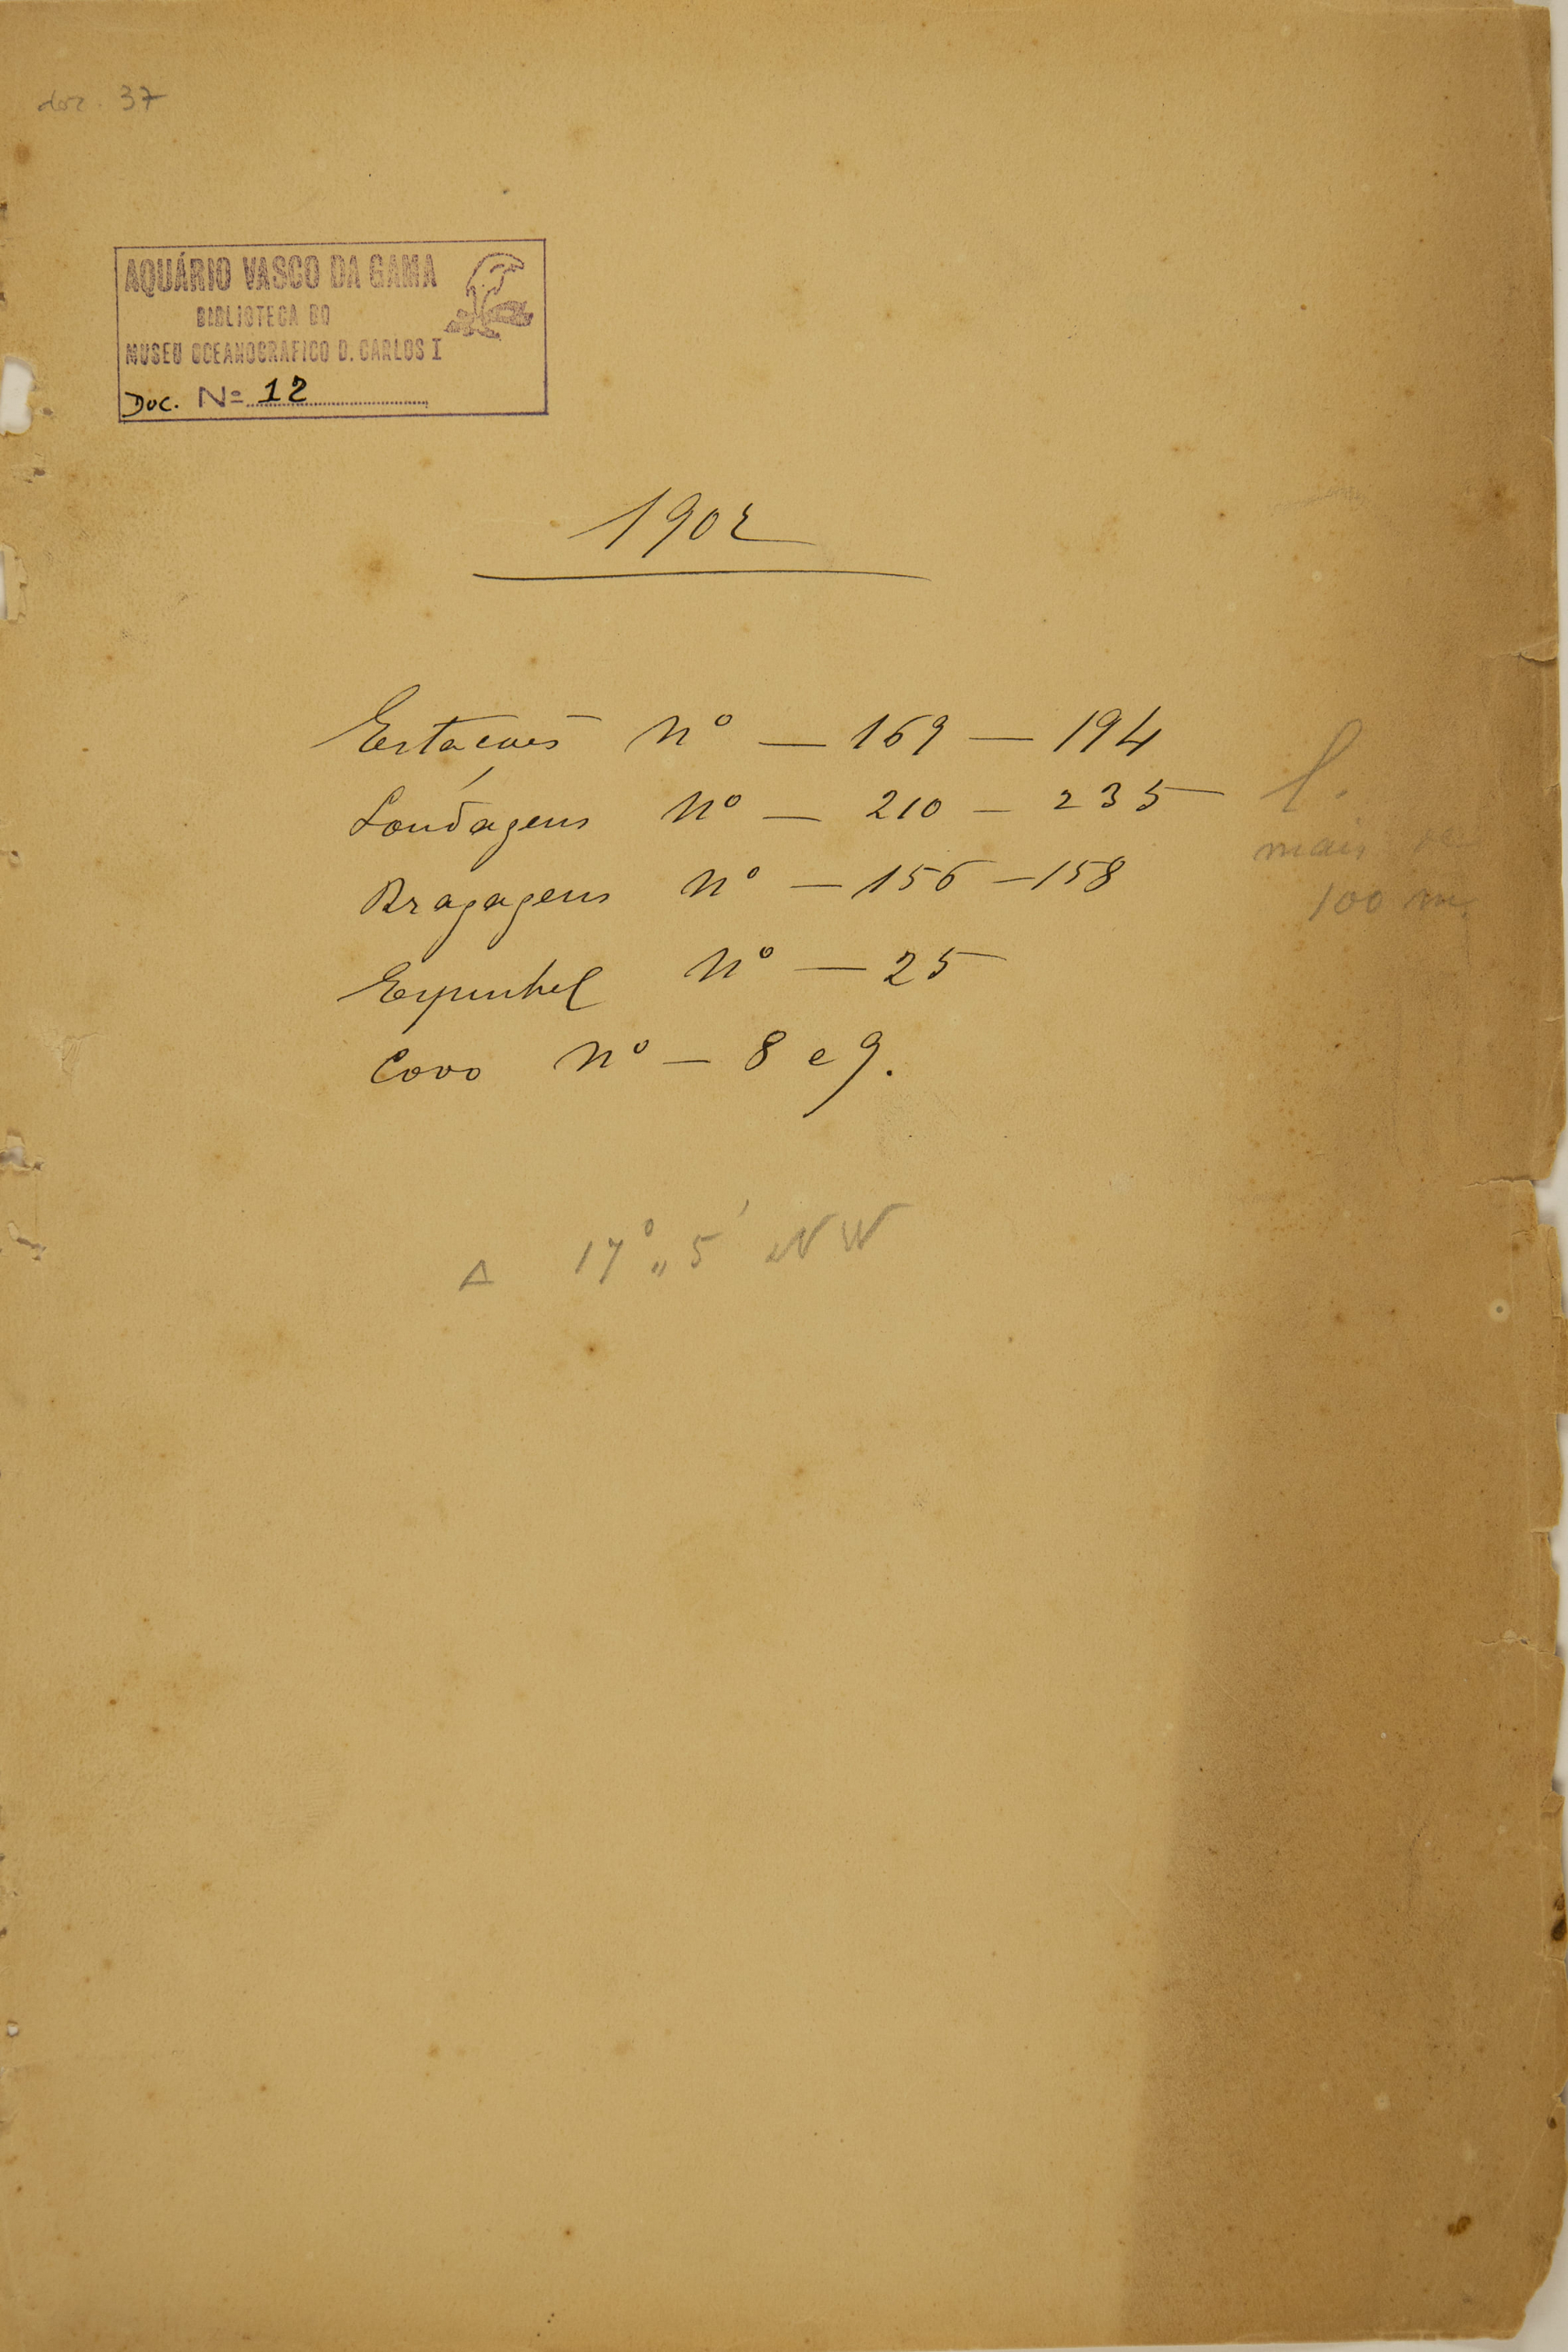 doc. 37
AQUÁRIO VASCO DA GAMA
BIBLIOTECA DO
MUSEU OCEANOGRAFICO D. CARLOS I
Doc. Nº 12
1902
Estacoes Nº — 169 — 194
Sondagens Nº — 210 — 235
Dragagens Nº — 156 — 158
Espinhel Nº — 25
Covo Nº — 8 e 9.
mais
100 m
Δ 17° „ 5' NW